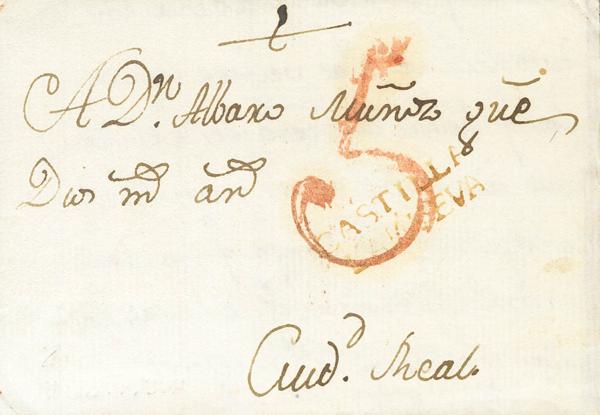 A Dn. Albaro Muñoz que
Dios ms as
5
CASTILLA
NUEVA
Ciudd. Real.